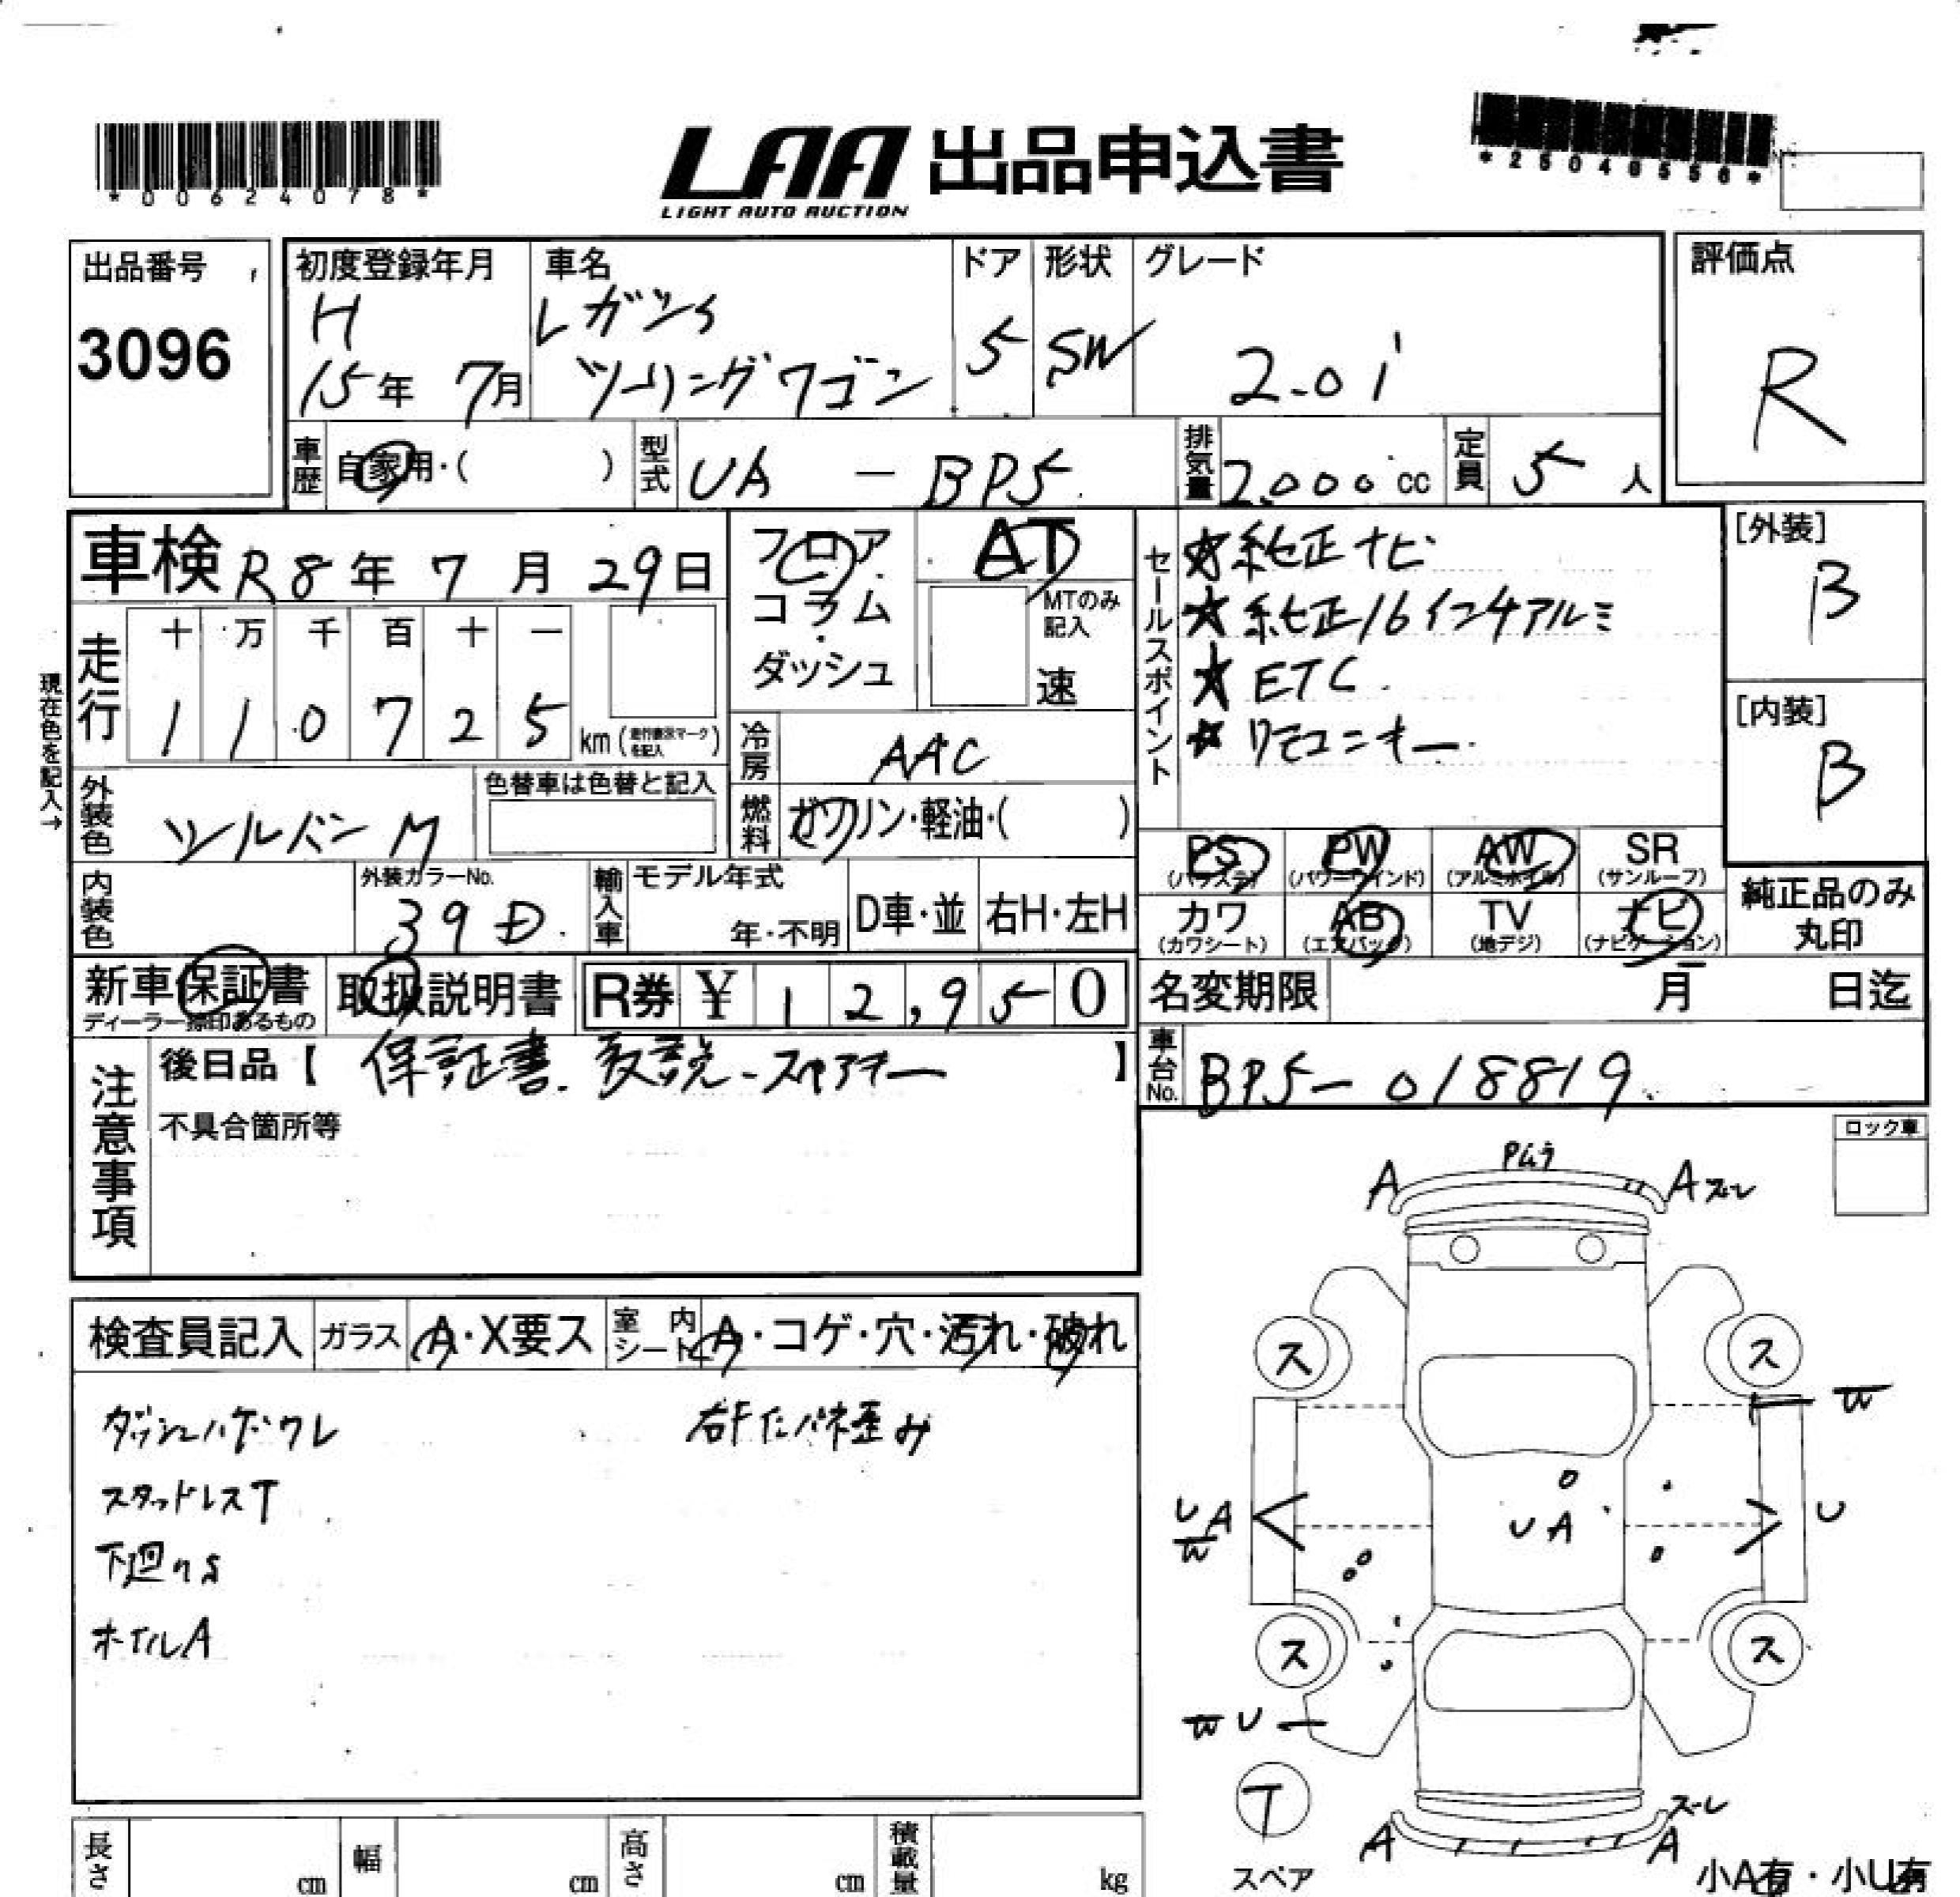 *00624078*
LAA 出品申込書
LIGHT AUTO AUCTION
*25048556*
出品番号
3096
初度登録年月
H
15年 7月
車名
レガシィ
ツーリングワゴン
ドア
5
形状
SW
グレード
2.0i
評価点
R
車歴 自家用・( )
型式 UA - BP5
排気量 2.000 cc
定員 5 人
車検 R8年 7月 29日
フロア・コラム・ダッシュ
AT
MTのみ記入
速
セールスポイント
☆純正ナビ
★純正16インチアルミ
★ETC
★リモコンキー
[外装]
B
[内装]
B
現在色を記入→
走行
十 万 千 百 十 一
1 1 0 7 2 5 km (走行表示マークを記入)
冷房 AAC
燃料 ガソリン・軽油・( )
外装色 シルバーM
色替車は色替と記入
内装色
外装カラーNo.
39D
輸入車
モデル年式
年・不明
D車・並
右H・左H
PS (パワステ)
PW (パワーウインド)
AW (アルミホイル)
SR (サンルーフ)
カワ (カワシート)
AB (エアバッグ)
TV (地デジ)
ナビ (ナビゲーション)
純正品のみ丸印
新車保証書
ディーラー捺印あるもの
取扱説明書
R券 ¥ 12,950
名変期限 月 日迄
注意事項
後日品【 保証書. 取説-スペアキー 】
不具合箇所等
車台No. BP5-018819
ロック車
検査員記入
ガラス A・X要ス
室内シート A・コゲ・穴・汚れ・破れ
ダッシュハガレ
スタッドレスT
下廻りS
ホイルA
右Fインパネ歪み
Pムラ
A
A ズレ
ス
ス
W
UA
W
UA
U
ス
ス
W U
T
スペア
A
ズレ
A
小A有・小U有
長さ cm
幅 cm
高さ cm
積載量 kg